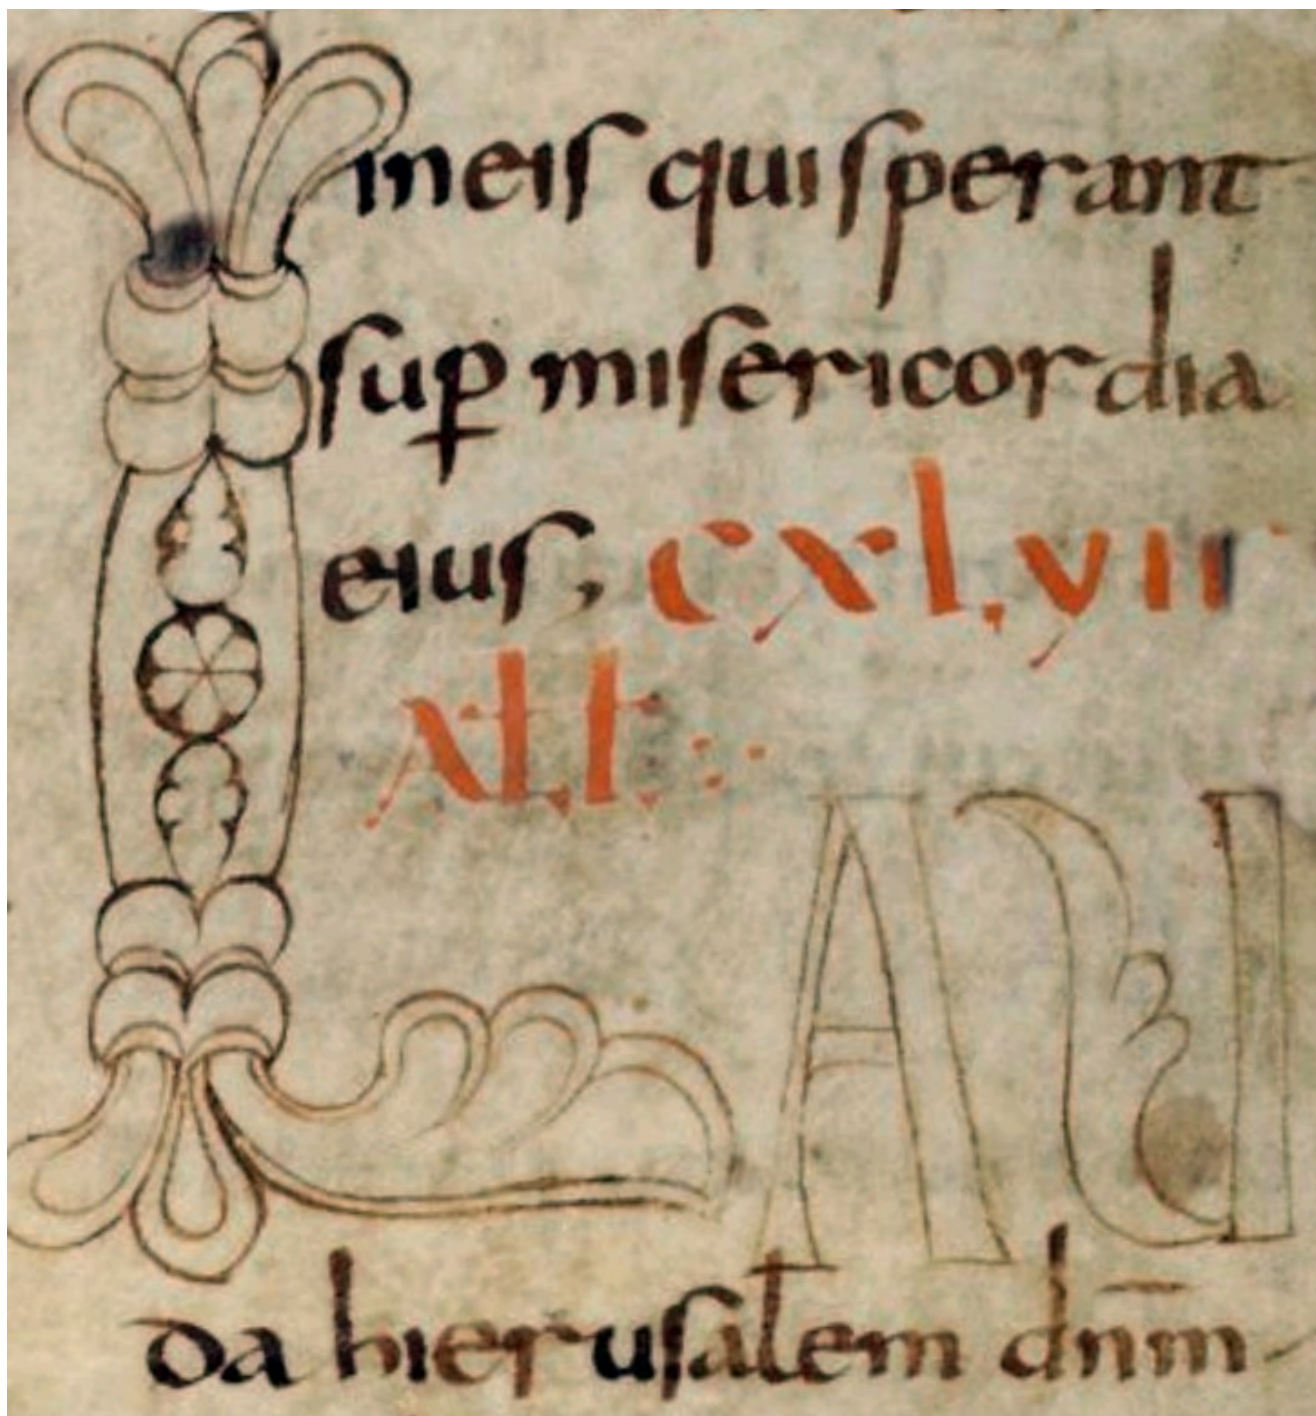 in eis qui sperant
suꝑ misericordia
eius; CXLVII
ALL
LAU
da hierusalem dn̄m